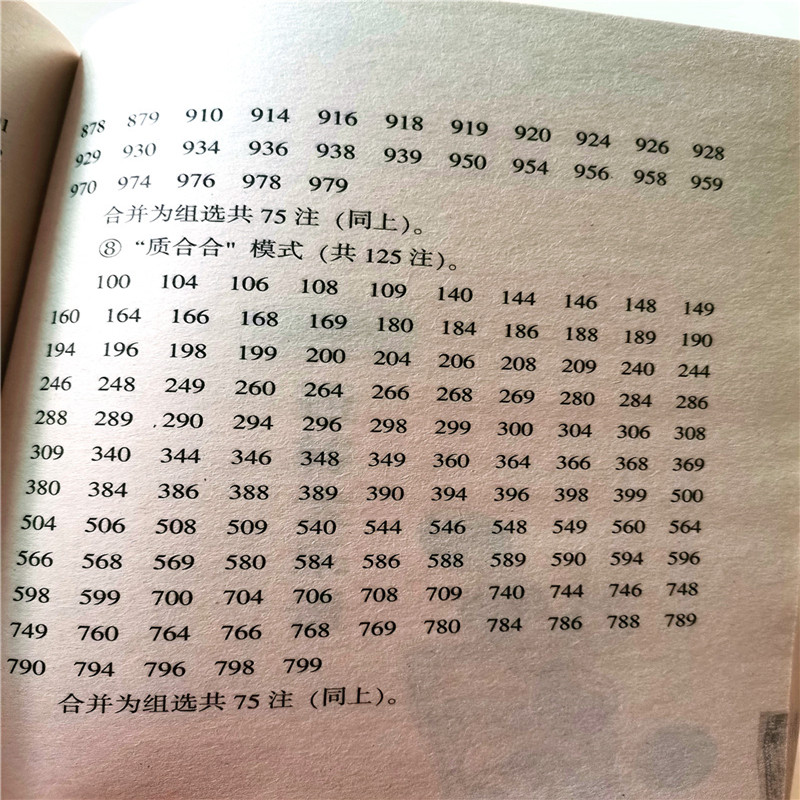 878 879 910 914 916 918 919 920 924 926 928
929 930 934 936 938 939 950 954 956 958 959
970 974 976 978 979
合并为组选共75注(同上)。
⑧“质合合"模式(共125注)。
100 104 106 108 109 140 144 146 148 149
160 164 166 168 169 180 184 186 188 189 190
194 196 198 199 200 204 206 208 209 240 244
246 248 249 260 264 266 268 269 280 284 286
288 289 290 294 296 298 299 300 304 306 308
309 340 344 346 348 349 360 364 366 368 369
380 384 386 388 389 390 394 396 398 399 500
504 506 508 509 540 544 546 548 549 560 564
566 568 569 580 584 586 588 589 590 594 596
598 599 700 704 706 708 709 740 744 746 748
749 760 764 766 768 769 780 784 786 788 789
790 794 796 798 799
合并为组选共75注(同上)。